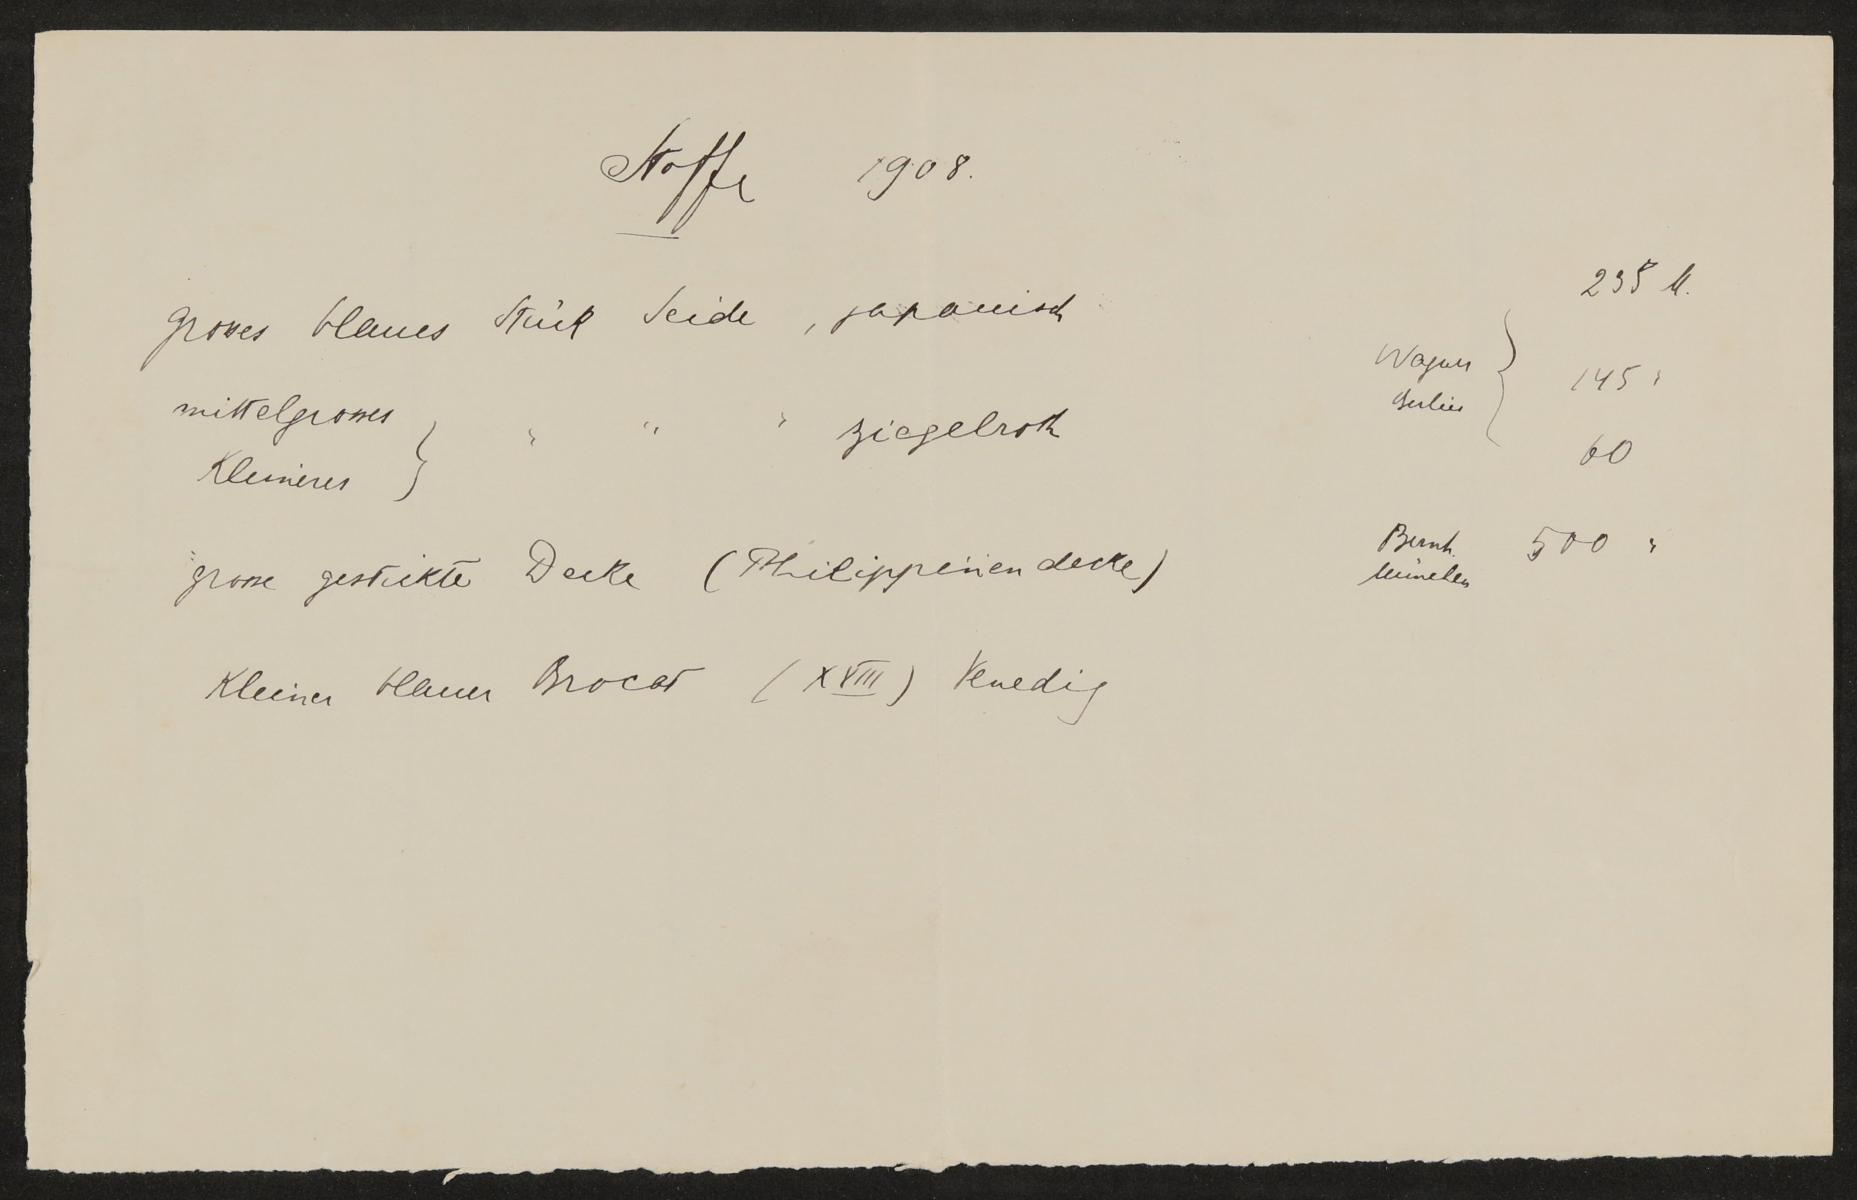 Stoffe 1908.
grosses blaues Stück Seide, japanisch 235 M.
mittelgrosses } " " " ziegelroth Wagner } 145 "
Kleineres Berlin 60
grosse gestickte Decke (Philippinendecke) Bernh. 500 "
München
Kleiner blauer Brocat (XVIII) Venedig